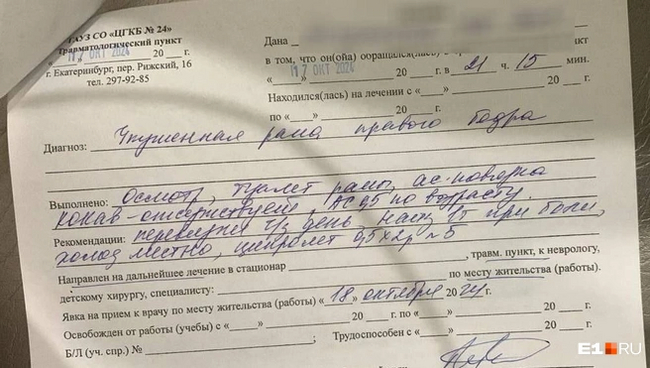 ГАУЗ СО «ЦГКБ № 24»
травматологический пункт
«17 ОКТ 2024» 20 г.
г. Екатеринбург, пер. Рижский, 16
тел. 297-92-85
Дана
в том, что он(ойа) обращался(лась) в пункт
«17 ОКТ 2024» 20 г. в 21 ч. 15 мин.
Находился(лась) на лечении с « » 20 г.
по « » 20 г.
Диагноз: Укушенная рана правого бедра
Выполнено: Осмотр, туалет раны,
АС 0,5 по возрасту.
Рекомендации: перевязки ч/з день при боли,
холод местно, 0,5х2р №5
Направлен на дальнейшее лечение в стационар , травм. пункт, к неврологу,
детскому хирургу, специалисту: по месту жительства (работы).
Явка на прием к врачу по месту жительства (работы) «18» октября 2024 г.
Освобожден от работы (учебы) с « » 20 г. по « » 20 г.
Б/Л (уч. спр.) № Трудоспособен с « » 20 г.
E1.RU